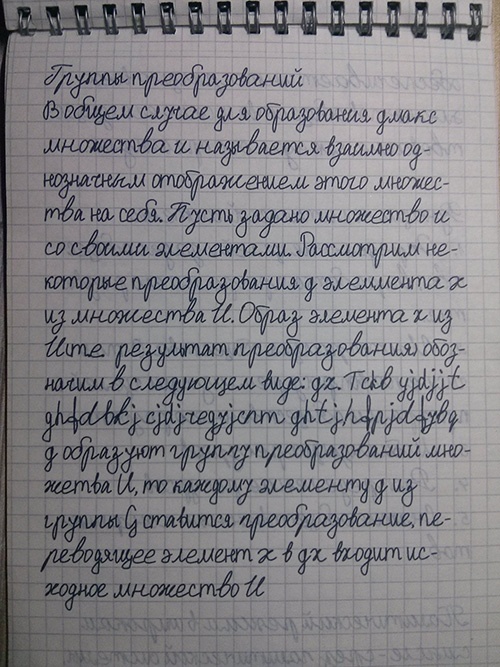 Группы преобразований
В общем случае для образования дмакс
множества и называется взаимно од-
нозначным отображением этого множес-
тва на себя. Пусть задано множество и
со своими элементами. Рассмотрим не-
которые преобразования g элемента x
из множества U. Образ элемента x из
U(те результат преобразования) обоз-
начим в следующем виде: gx. Tckb yjdjjt
ghfdbkj cjdj
g образуют группу преобразований мно-
жетва U, то каждому элементу g из
группы G ставится преобразование, пе-
реводящее элемент x в gx входит ис-
ходное множество U